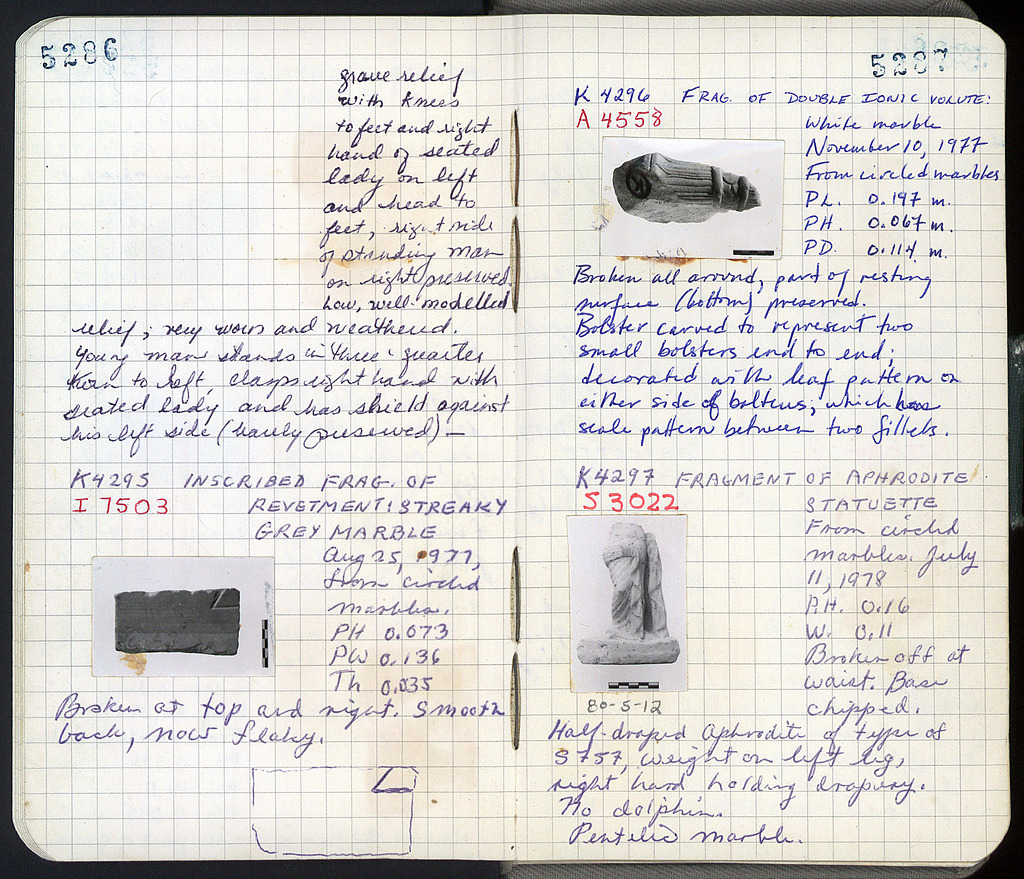 5286
grave relief
with knees
to feet and right
hand of seated
lady on left
and head to
feet, right side
of standing man
on right preserved.
Low, well-modelled
relief; very worn and weathered.
Young man stands in three-quarter
turn to left, clasps right hand with
seated lady and has shield against
his left side (barely preserved) —
K4295 INSCRIBED FRAG. OF
I 7503 REVETMENT: STREAKY
GREY MARBLE
Aug 25, 1977,
from circled
marbles.
PH 0.073
PW 0.136
Th 0.035
Broken at top and right. Smooth
back, now flaky.
5287
K 4296 FRAG. OF DOUBLE IONIC VOLUTE:
A 4558 White marble
November 10, 1977
From circled marbles
PL. 0.197 m.
PH. 0.067 m.
PD. 0.114 m.
Broken all around, part of resting
surface (bottom) preserved.
Bolster carved to represent two
small bolsters end to end;
decorated with leaf pattern on
either side of which has
scale pattern between two fillets.
K4297 FRAGMENT OF APHRODITE
S 3022 STATUETTE
From circled
marbles. July
11, 1978
P.H. 0.16
W. 0.11
Broken off at
waist. Base
chipped.
80-5-12
Half-draped Aphrodite of type of
S 757, weight on left leg,
right hand holding drapery.
No dolphin.
Pentelic marble.